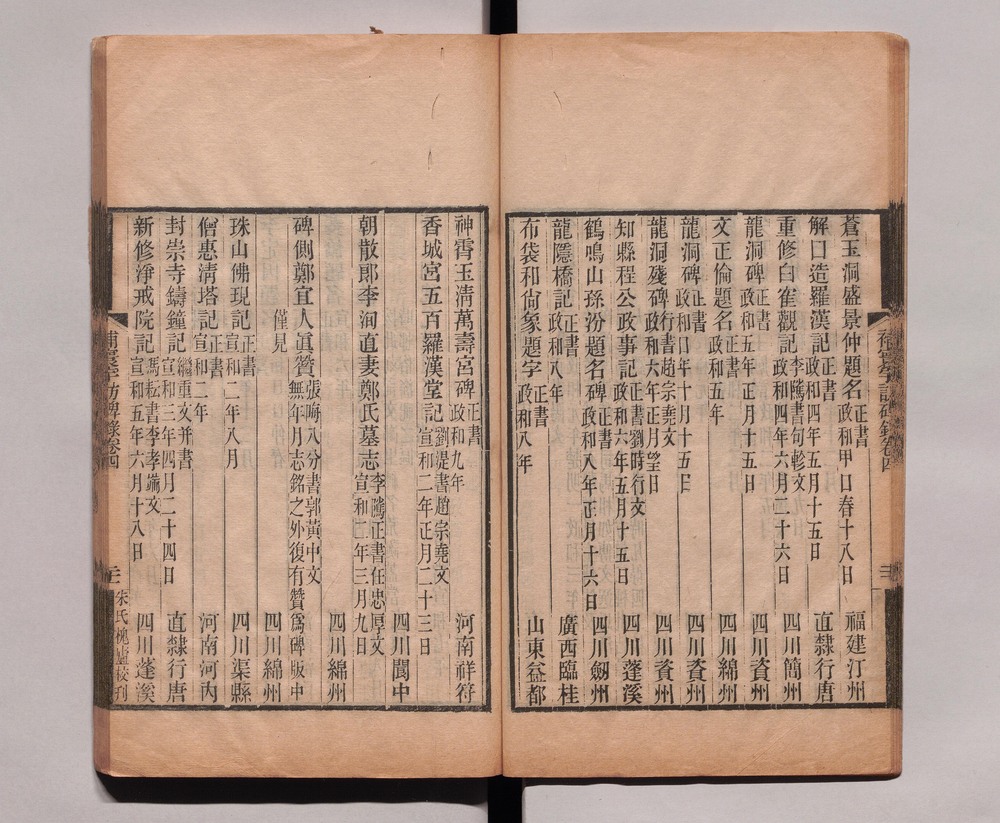 蒼玉洞盛景仲題名 正書 政和甲□春十八日 福建汀州
解□造羅漢記 正書 政和四年五月十五日 直隸行唐
重修白雀觀記 李騭書句軫文 政和四年六月二十六日 四川簡州
龍洞碑 正書 政和五年正月十五日 四川資州
文正倫題名 正書 政和五年 四川綿州
龍洞碑 正書 政和□年十月十五日 四川資州
龍洞殘碑 行書趙宗堯文 政和六年正月望日 四川資州
知縣程公政事記 正書劉時行文 政和六年五月十五日 四川蓬溪
鶴鳴山孫汾題名碑 正書 政和八年正月十六日 四川劒州
龍隱橋記 正書 政和八年 廣西臨桂
布袋和尙象題字 正書 政和八年 山東益都
補寰宇訪碑錄卷四
神霄玉清萬壽宮碑 正書 政和九年 河南祥符
香城宮五百羅漢堂記 劉湜書趙宗堯文 宣和二年正月二十三日 四川閬中
朝散郎李洵直妻鄭氏墓志 李騭正書任忠厚文 宣和二年三月九日 四川綿州
碑側鄭宜人眞贊 張㬇八分書郭黃中文 無年月志銘之外復有贊爲碑版中
僅見 四川綿州
珠山佛現記 正書 宣和二年八月 四川渠縣
僧惠清塔記 正書 宣和二年 河南河內
封崇寺鑄鐘記 繼重文并書 宣和三年四月二十四日 直隸行唐
新修淨戒院記 馮耘書李孝端文 宣和五年六月十八日 四川蓬溪
補寰宇訪碑錄卷四 朱氏槐廬校刊